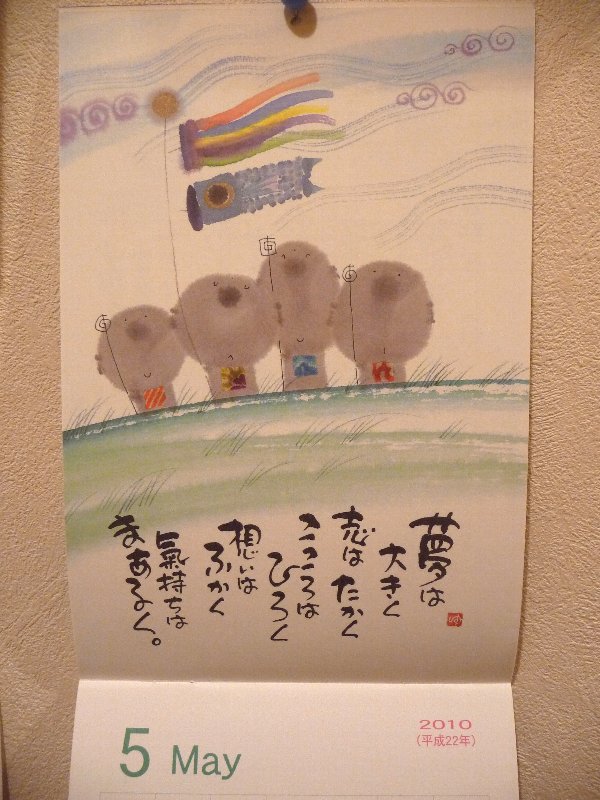 夢は
大きく
志は
たかく
こころは
ひろく
想いは
ふかく
氣持ちは
まあるく。
2010
(平成22年)
5 May